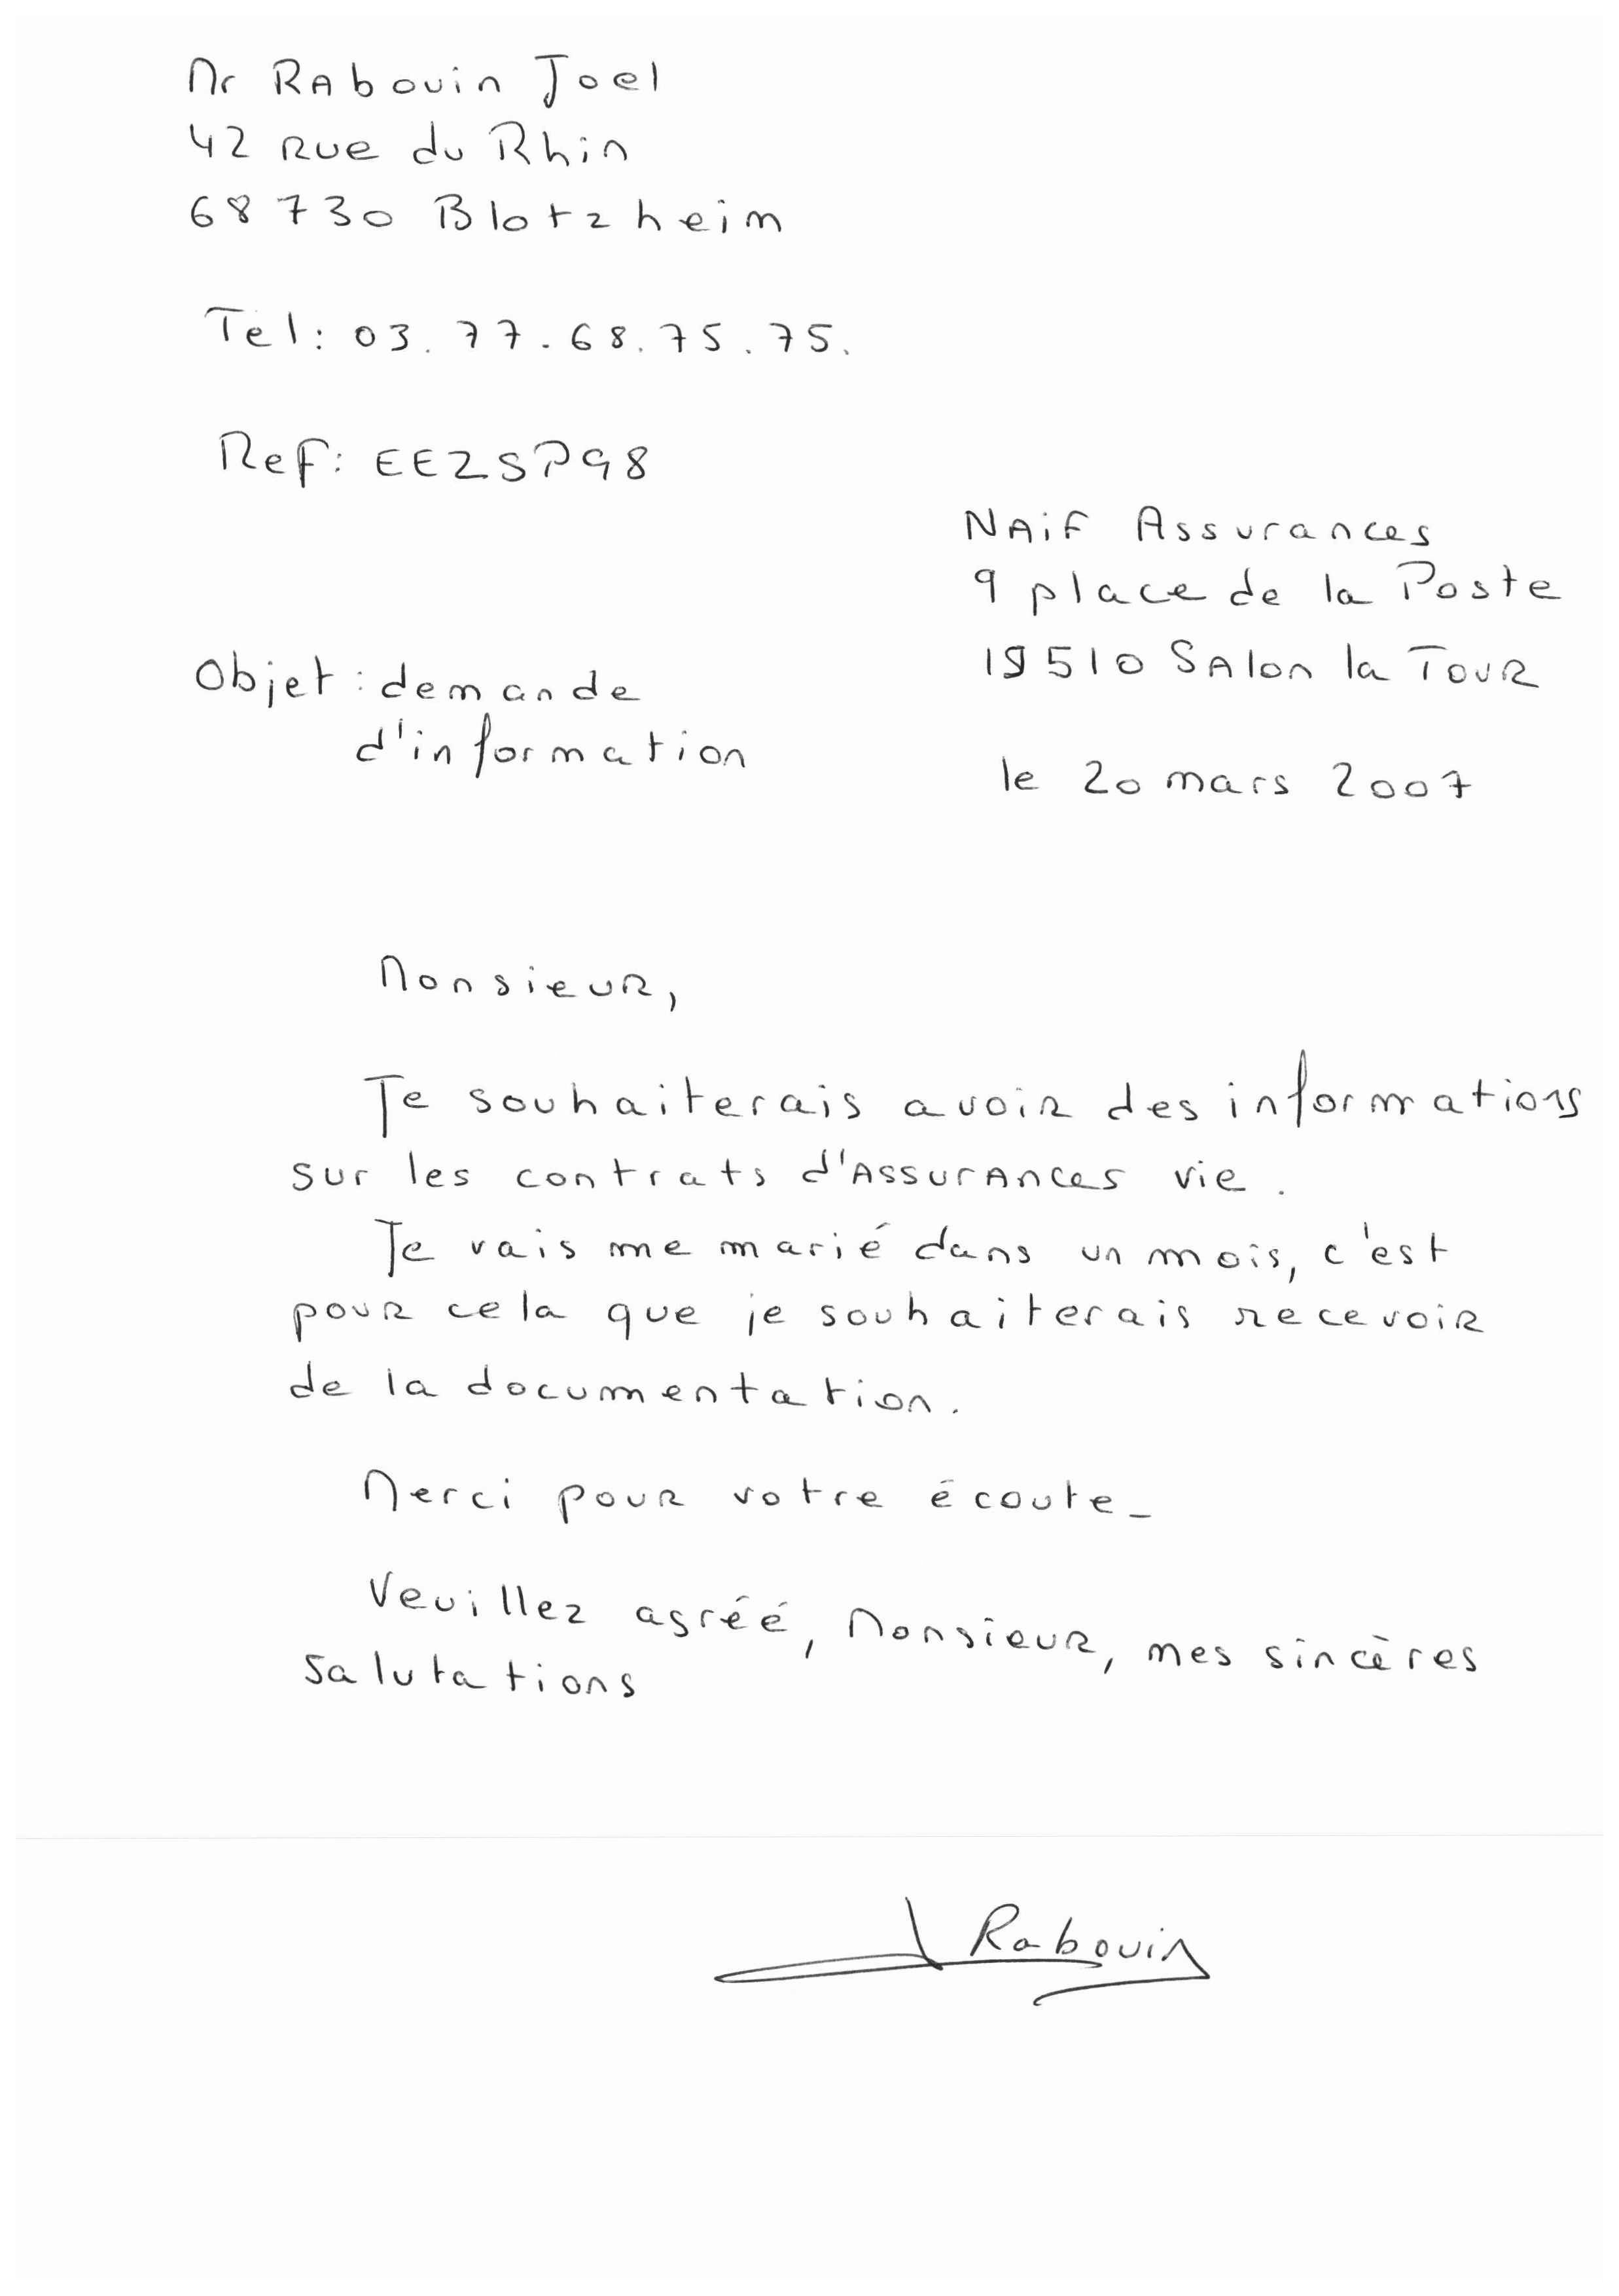 Mr RAbouin Joel
42 Rue du Rhin
68730 Blotzheim
Tel: 03.77.68.75.75.
Ref: EEZSP98
NAiF Assurances
9 place de la Poste
19510 SAlon la TouR
Objet : demande
d'information
le 20 mars 2007
MonsieuR,
Je souhaiterais avoiR des informations
sur les contrats d'AssurAnces vie.
Je vais me marié dans un mois, c'est
pouR cela que je souhaiterais recevoiR
de la documentation.
Merci pouR votre écoute_
Veuillez agréé, MonsieuR, mes sincères
salutations
Rabouin